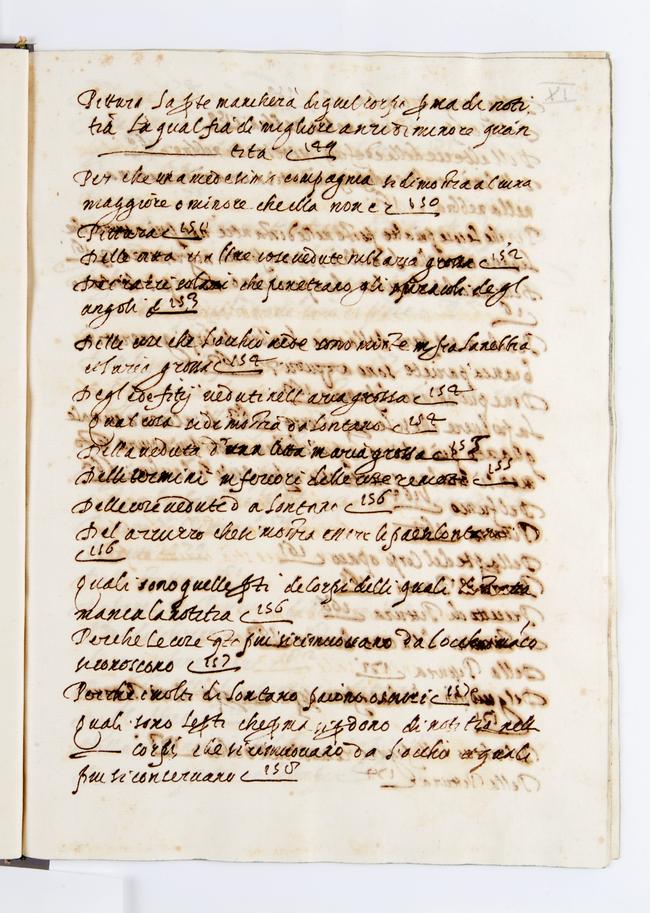 XI
Pittura La pte mancherà di quel corpo pma di noti
tia La qual fia di migliore anzi di minore quan
tita 149
Per che una medesima campagna si dimostra alcuna
maggiore o minore che ella non e 150
Pittura 151
Delle citta et altre cose vedute nell aria grossa 152
De razzi solari che penetrano gli spiracoli degl
angoli 153
Delle cose che l occhio vede sono miste infra la nebbia
et l aria grossa 154
Degl edefitij veduti nell aria grossa 154
Qual cosa si dimostra da lontano 154
Della veduta d una citta in aria grossa 155
Delli termini inferiori delle cose remote 155
Delle cose vedute da lontano 156
Del azzurro che si mostra essere li paesi lontani
156
Quali sono quelle pti de corpi delli quali
manca la notitia 156
Perche le cose piu si rimuovano da l occhio
si conoscono 157
Perche i volti di lontano paiono oscuri 157
quali sono le pti che pma si pdono di notitia nelli
corpi che si rimuovano da l occhio e quali
piu si conservano 158